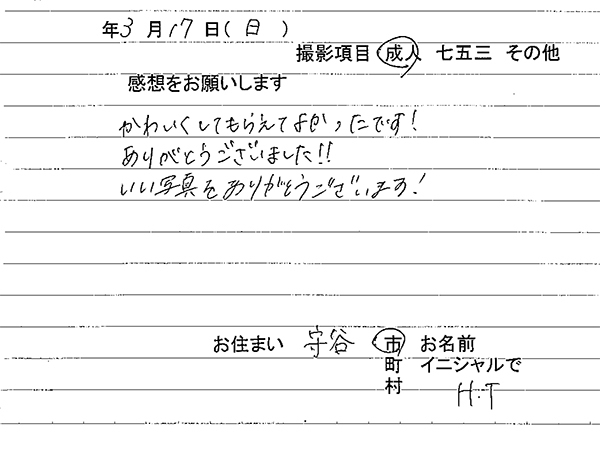 年3月17日(日)
撮影項目 成人 七五三 その他
感想をお願いします
かわいくしてもらえてよかったです!
ありがとうございました!!
いい写真をありがとうございます!
お住まい 守谷 市 お名前
町 イニシャルで
村 H.T